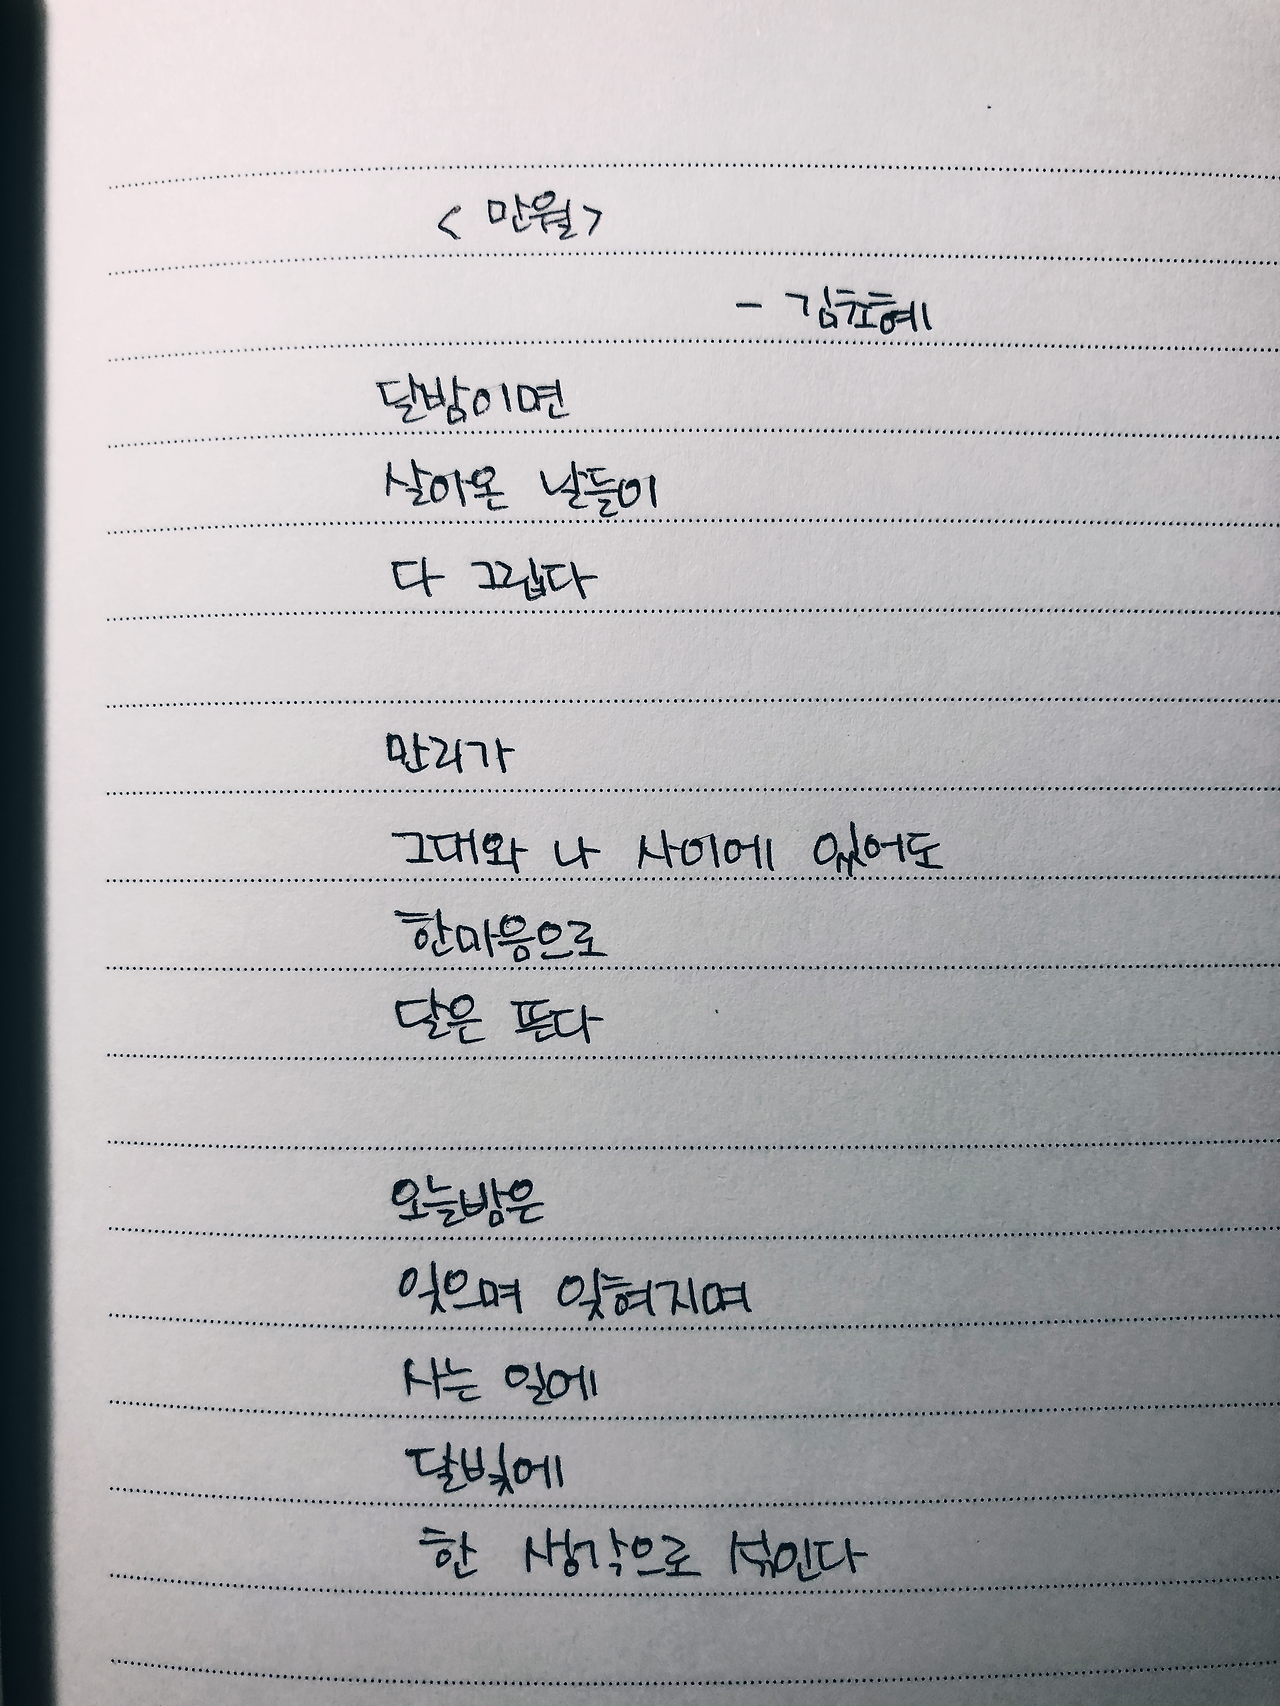 < 만월 >
- 김초혜
달밤이면
살아온 날들이
다 그립다
만리가
그대와 나 사이에 있어도
한마음으로
달은 뜬다
오늘밤은
잊으며 잊혀지며
사는 일에
달빛에
한 생각으로 섞인다